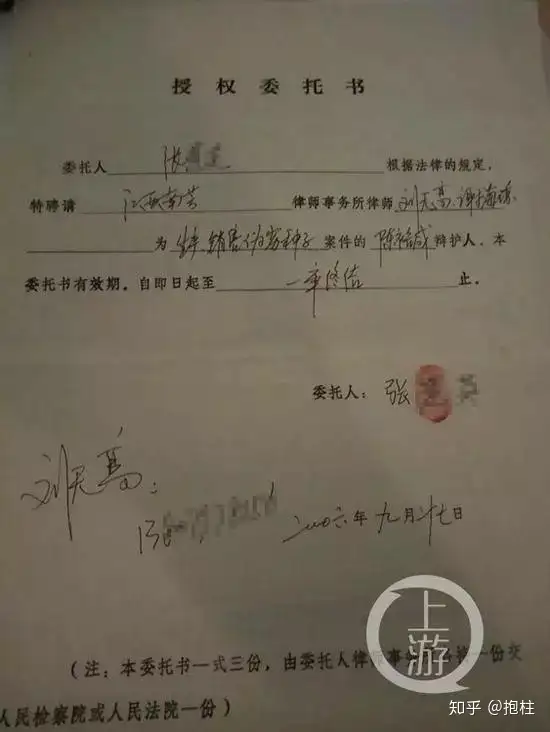 授权委托书
委托人 张 根据法律的规定,
特聘请 江西南芳 律师事务所律师 刘天高、谢海
为 生产、销售伪劣种子 案件的 陈 诚 辩护人。本
委托书有效期。自即日起至 一审终结 止。
委托人: 张
刘天高:
二〇〇六年九月 七日
上游
(注:本委托书一式三份,由委托人律师事 一份交
人民检察院或人民法院一份)
知乎 @抱柱